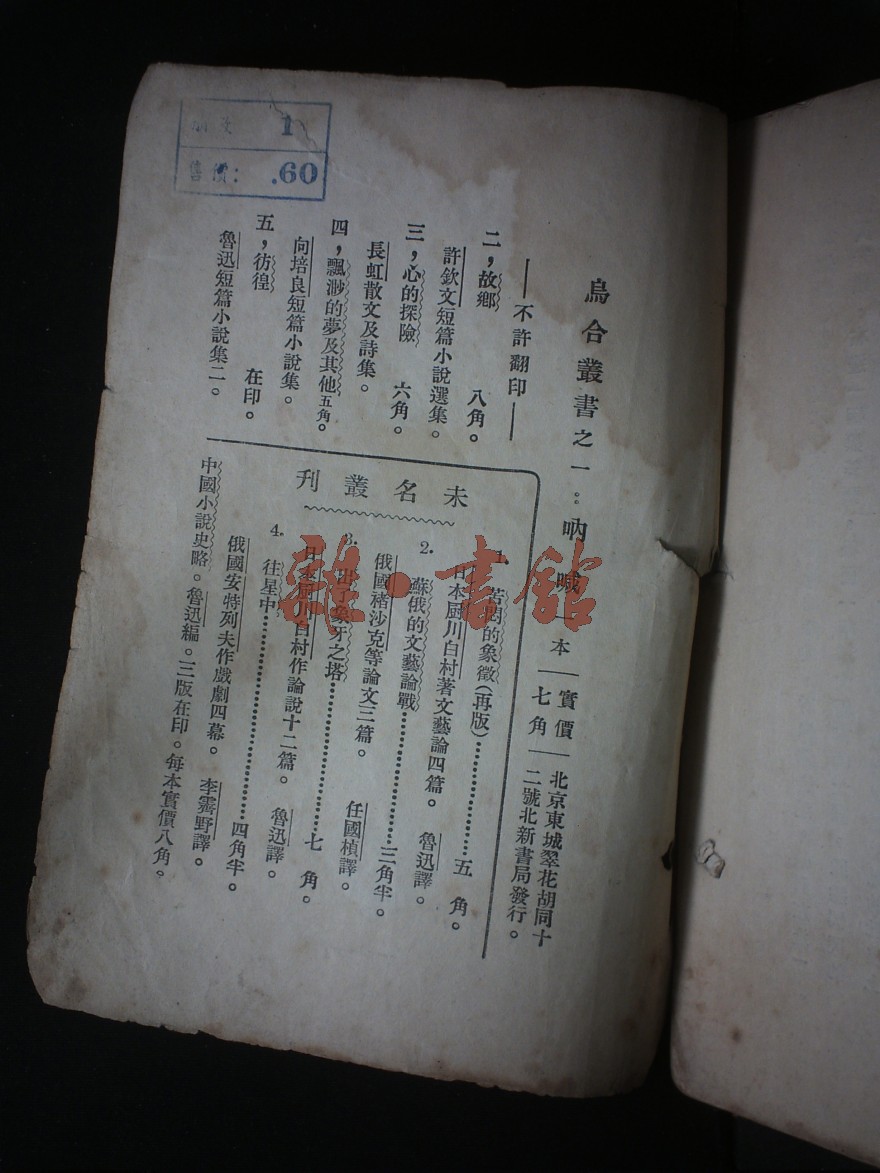 烏合叢書之一：吶喊 一本 實價七角 北京東城翠花胡同十二號北新書局發行。
——不許翻印——
二，故鄉 八角。
許欽文短篇小說選集。
三，心的探險 六角。
長虹散文及詩集。
四，飄渺的夢及其他 五角。
向培良短篇小說集。
五，彷徨 在印。
魯迅短篇小說集二。
未名叢刊
1. 苦悶的象徵(再版)………………五角。
日本厨川白村著文藝論四篇。 魯迅譯。
2. 蘇俄的文藝論戰………………三角半。
俄國褚沙克等論文三篇。 任國楨譯。
3. 出了象牙之塔………………七角。
日本厨川白村作論說十二篇。 魯迅譯。
4. 往星中………………四角半。
俄國安特列夫作戲劇四幕。 李霽野譯。
中國小說史略。魯迅編。三版在印。每本實價八角。
1
售價： .60
雜·書館